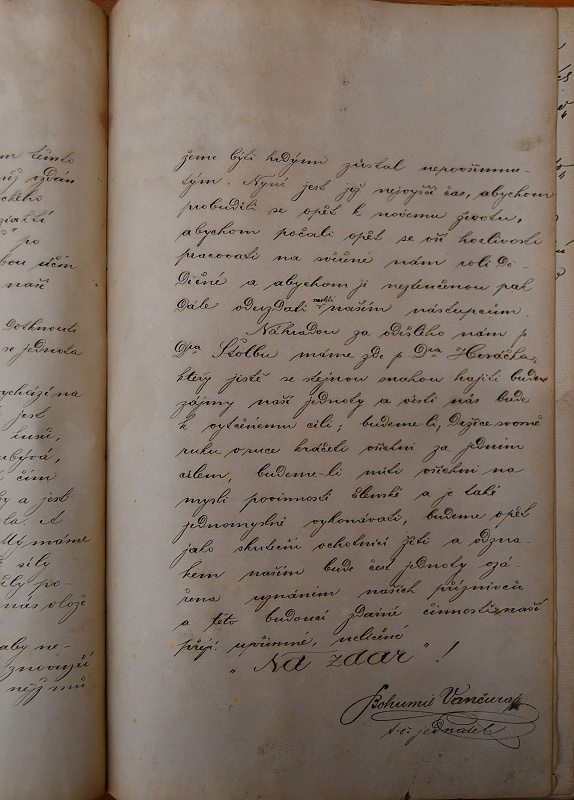 m těmto
ždán
ckého
po
bou učím
naší
Dotknouti
se jednota
ychází na
jest
husů,
ubývá,
čím
by a jest
la. A
My máme
síly
síly po-
nás vlože
aby ne-
znovuzří
nějž mů
žeme býti hrdými zůstal nepovšimnu-
tým. Nyní jest jěj nejvyšší čas, abychom
probudili se opět k novému životu,
abychom počali opět se vší horlivostí
pracovati na svěřené nám roli Dě-
dičné a abychom ji neztenčenou pak
dále odevzdati mohli našim nástupcům.
Náhradou za odešlého nám p.
Dra Štolbu máme zde p. Dra Horáčka,
který jistě se stejnou snahou hájiti bude
zájmy naší jednoty a vésti nás bude
k vytčenému cíli; budeme-li, Držíce svorně
ruku v ruce kráčeti všichni za jedním
cílem, budeme-li míti všichni na
mysli povinnosti členské a je také
jednomyslně vykonávati, budeme opět
jako skuteční ochotníci žíti a odzna-
kem naším bude čest jednoty ozá-
řena uznáním našich příznivců
a této budoucí zdárné činnosti naší
přeji upřímné, nelíčené
„Na zdar"!
Bohumil Vančura
t. č. jednatel